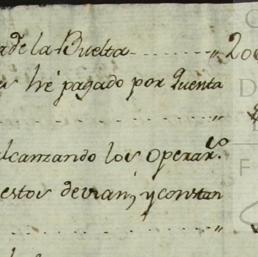 de la Buelta ........ „ 200
he pagado por Quenta
alcanzando los Operar.os
estos devian, y constan